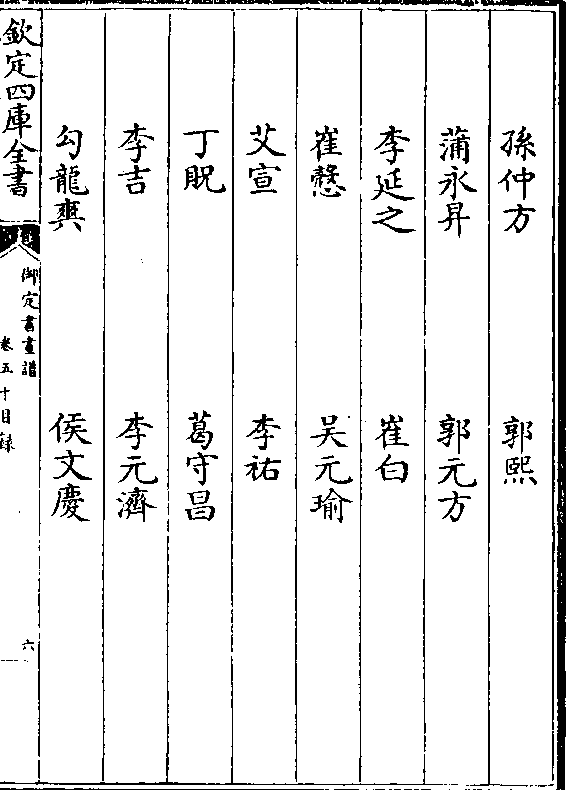 孫仲方 郭熙
蒲永昇 郭元方
李延之 崔白
崔慤 吴元瑜
艾宣 李祐
丁貺 葛守昌
李吉 李元濟
勾龍爽 侯文慶
欽定四庫全書
御定書畫譜
卷五十目録
六